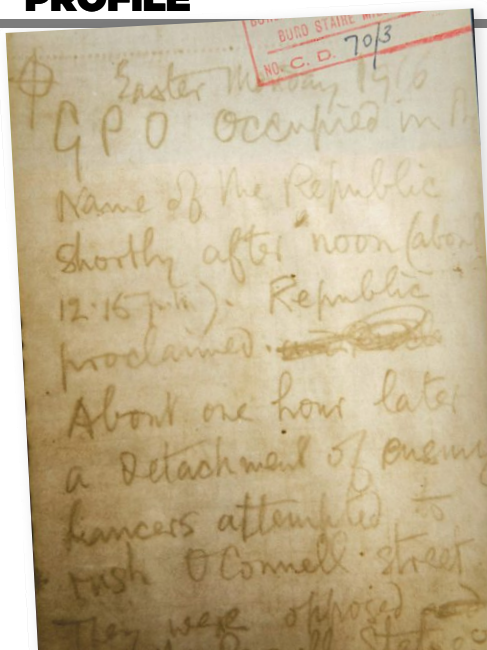 PROFILE
BURO STAIRE MI
NO. C. D. 70/3
Easter Monday 1916
G P O Occupied in
Name of the Republic
shortly after noon (abou
12.15 p.m.). Republic
proclaimed.
About one hour later
a Detachment of enemy
Lancers attempted to
rush O'Connell street
They were opposed